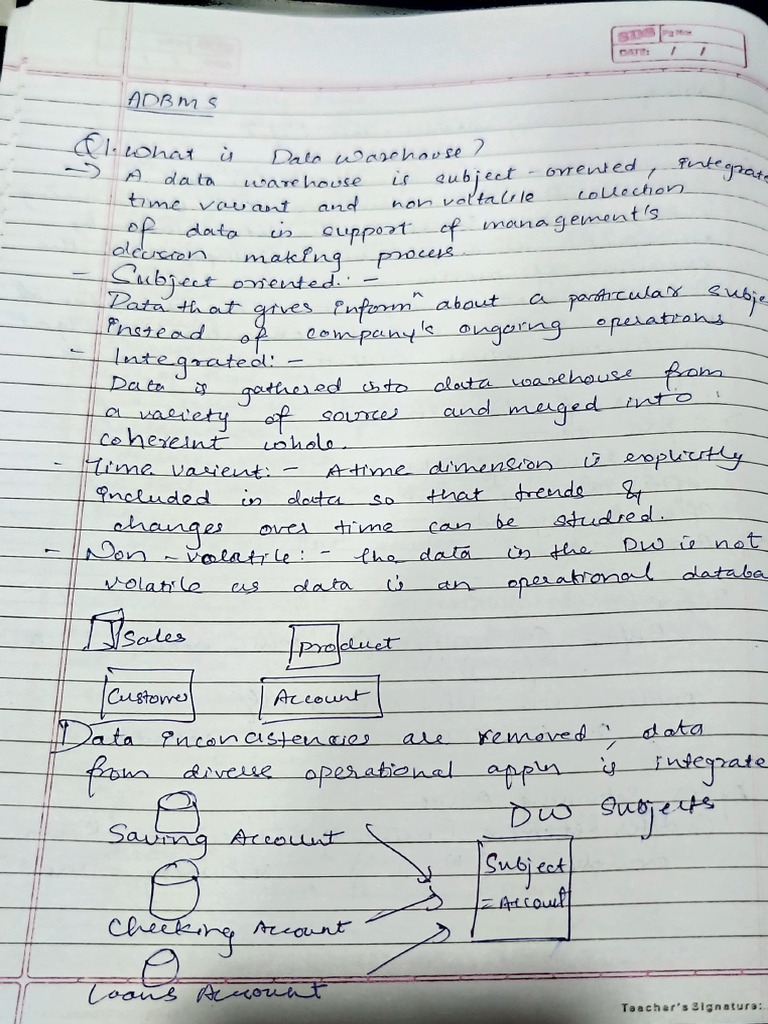 SDS Pg No:
DATE: / /
ADBMS
Q1. What is Data Warehouse?
→ A data warehouse is subject-oriented, integrate
time varant and non voltatile collection
of data in support of management's
decision making process.
- Subject oriented: -
Data that gives informⁿ about a particular subje
instead of company's ongoing operations
- Integrated: -
Data is gathered into data warehouse from
a variety of sources and merged into
coherent whole.
- Time varient: - A time dimension is explicitly
included in data so that trends &
changes over time can be studied.
- Non-volatile: - the data in the DW is not
volatile as data is an operational databa
Sales
Product
Customer
Account
Data inconcistencies are removed; data
from diverse operational appln is integrate
DW Subjects
Saving Account
Subject
= Account
Checking Account
Loans Account
Teacher's Signature: